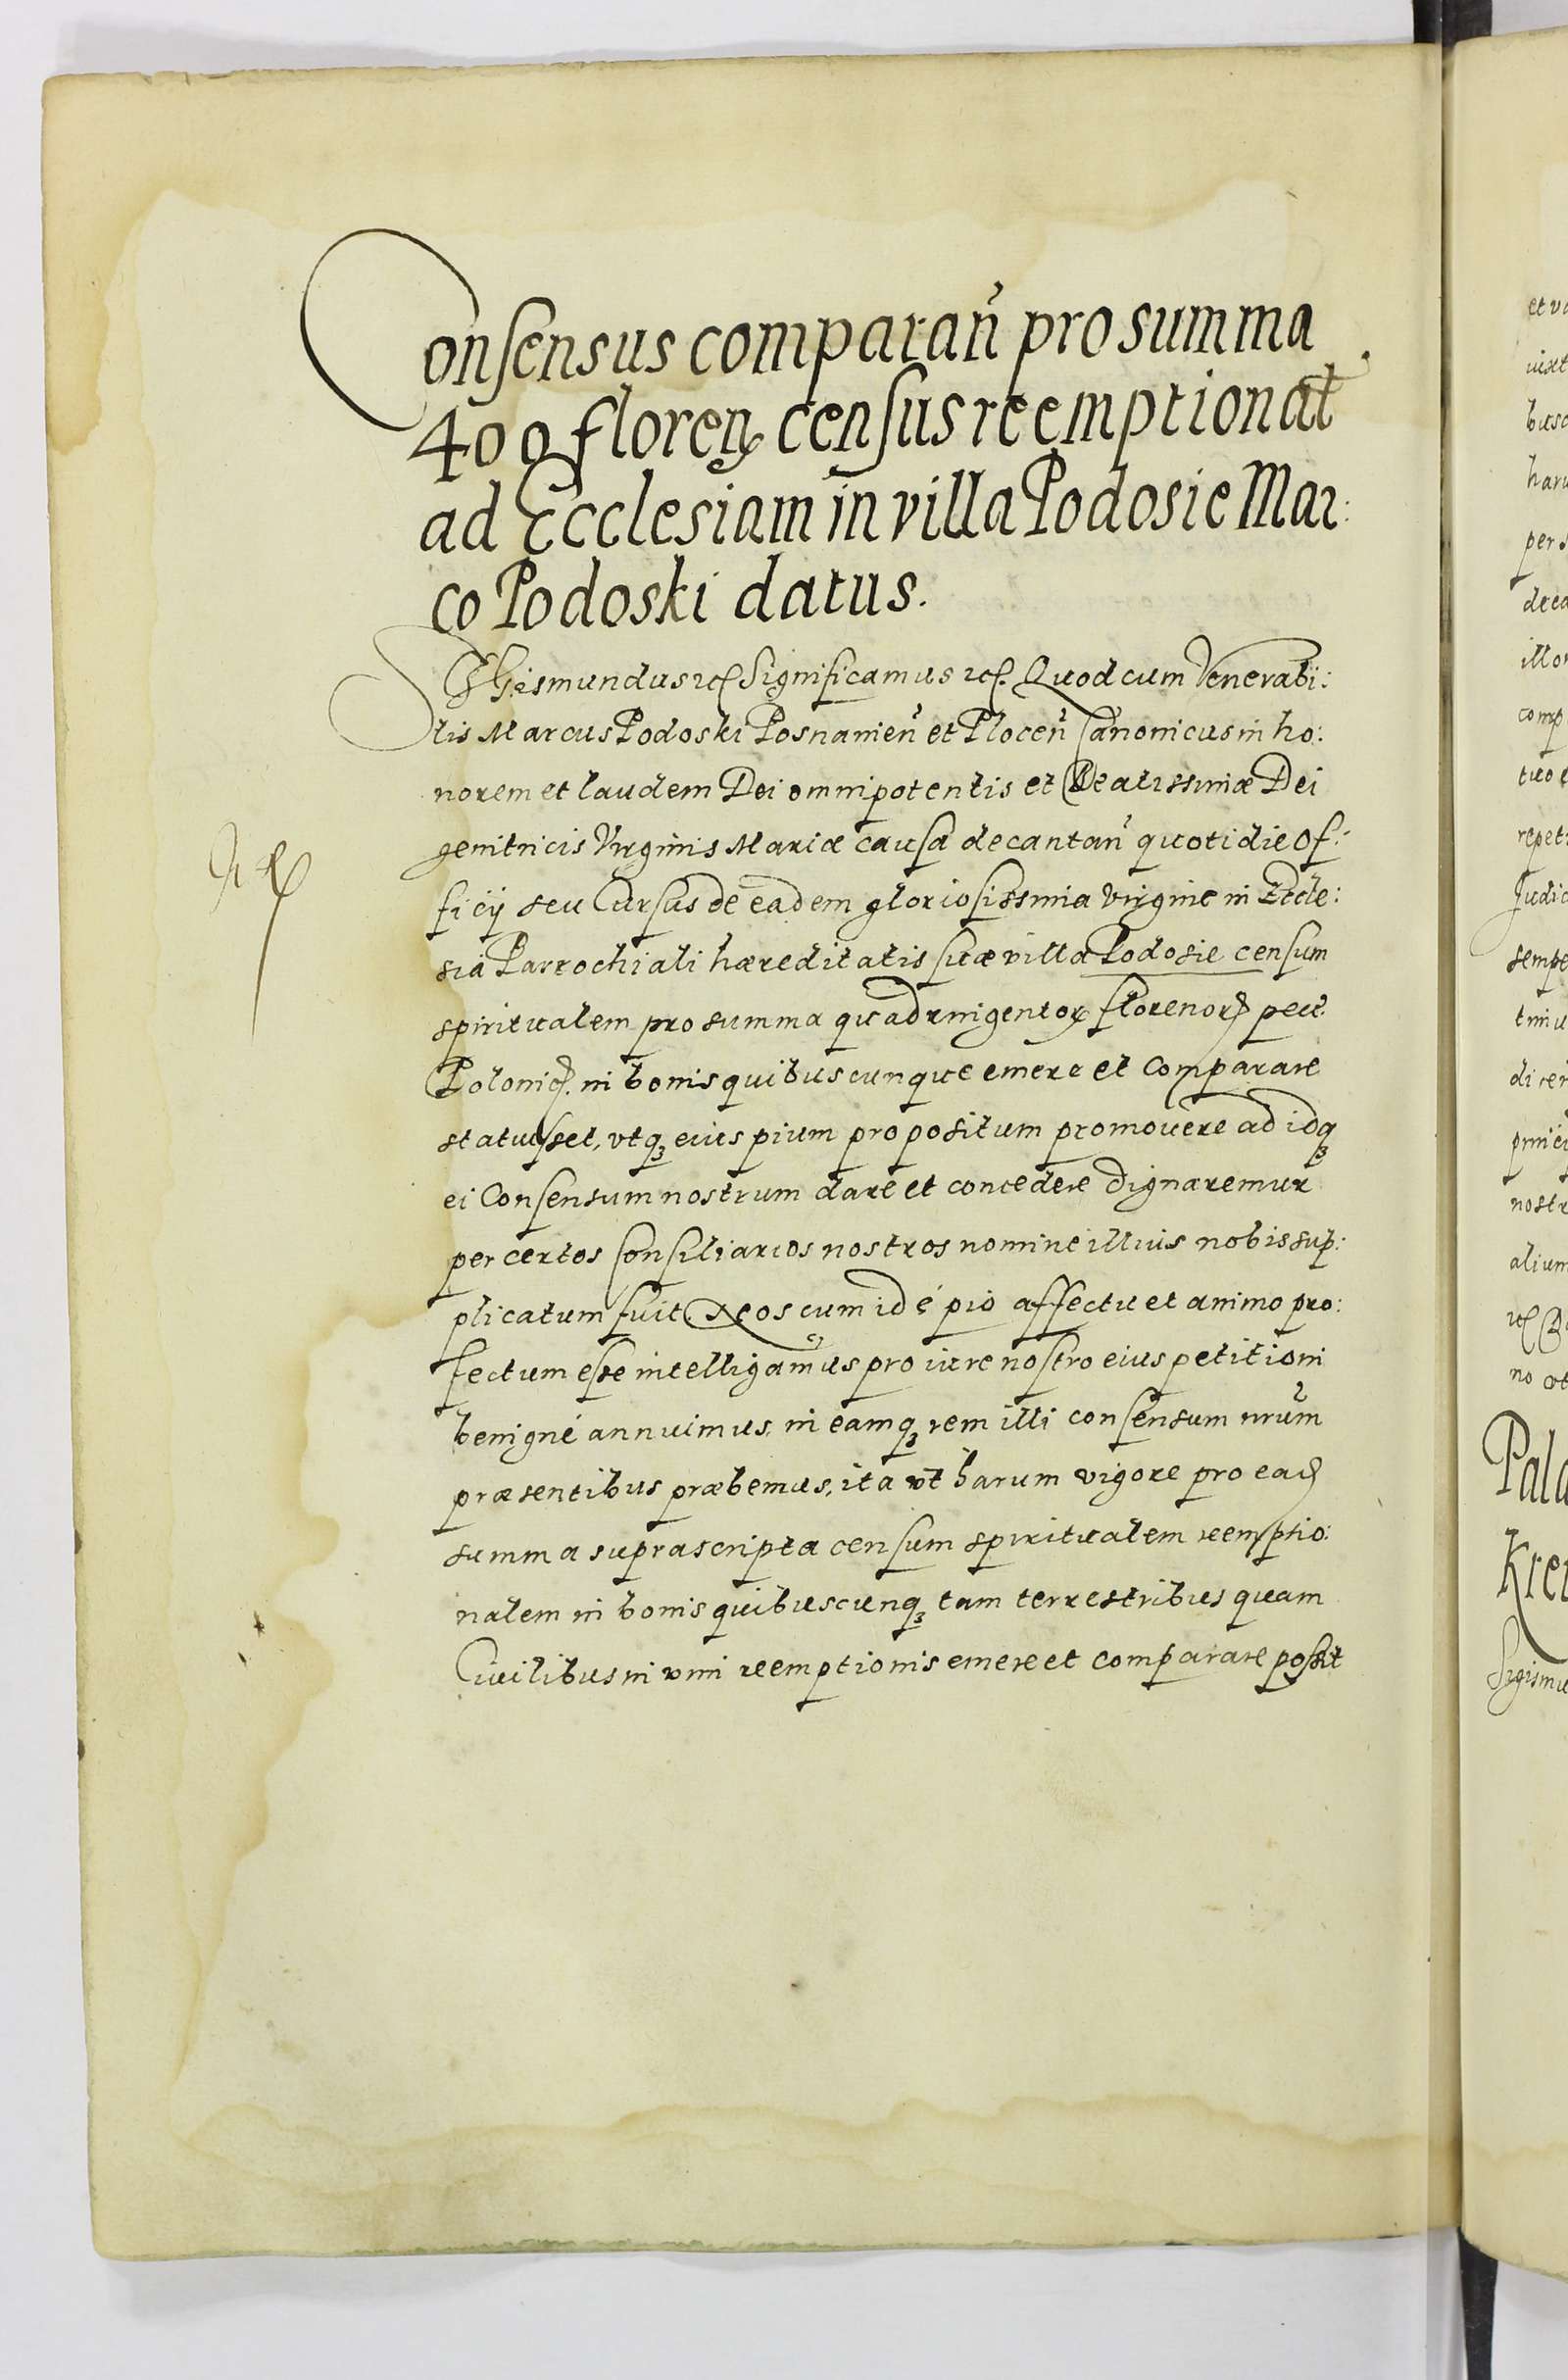 Consensus comparan̄ pro summa
400 floren census reemptional
ad Ecclesiam in villa Podosie Mar:
co Podoski datus.
Sigismundus etc Significamus etc. Quod cum Venerabi:
lis Marcus Podoski Posnanien̄ et Plocen̄ Canonicus in ho:
norem et laudem Dei omnipotentis et Beatissimæ Dei
genitricis Virginis Mariæ causa decantan̄ quotidie Of:
ficij seu Cursus de eadem gloriosissima Virgine in Eccle:
sia Parrochiali hæreditatis suæ villa Podosie censum
spiritualem pro summa quadringentoꝝ florenoꝝ pecu:
Polonic. in bonis quibuscunque emere et comparare
statuisset, vtqꝫ eius pium propositum promouere ad idqꝫ
ei Consensum nostrum dare et concedere dignaremur
per certos Consiliarios nostros nomine illius nobis sup:
plicatum fuit. Nos cum id é pio affectu et animo pro:
fectum esse intelligamus pro iure nostro eius petitioni
benigné annuimus, in eamqꝫ rem illi consensum nrum̄
præsentibus præbemus, ita vt harum vigore pro ead
summa suprascripta censum spiritualem reemptio:
nalem in bonis quibuscunqꝫ tam terrestribus quam
Ciuilibus in vim reemptionis emere et comparare possit
et va
harum
per s
illor
comp
repet
Judic
sempe
diner
nostr
alium
Pala
Kre
Sigismu